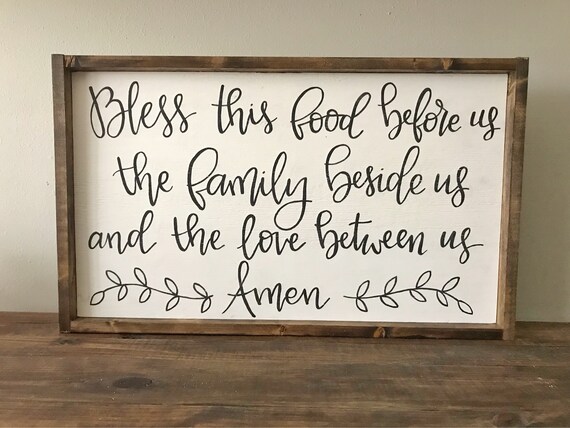 Bless this food before us
the family beside us
and the love between us
Amen